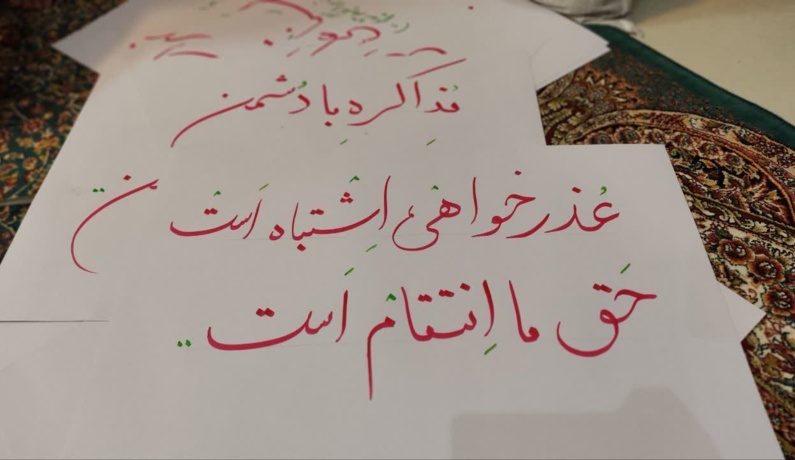 مُذاکره با دُشمن
عُذرخواهیِ اِشتباه اَست
حَق ما اِنتقام اَست